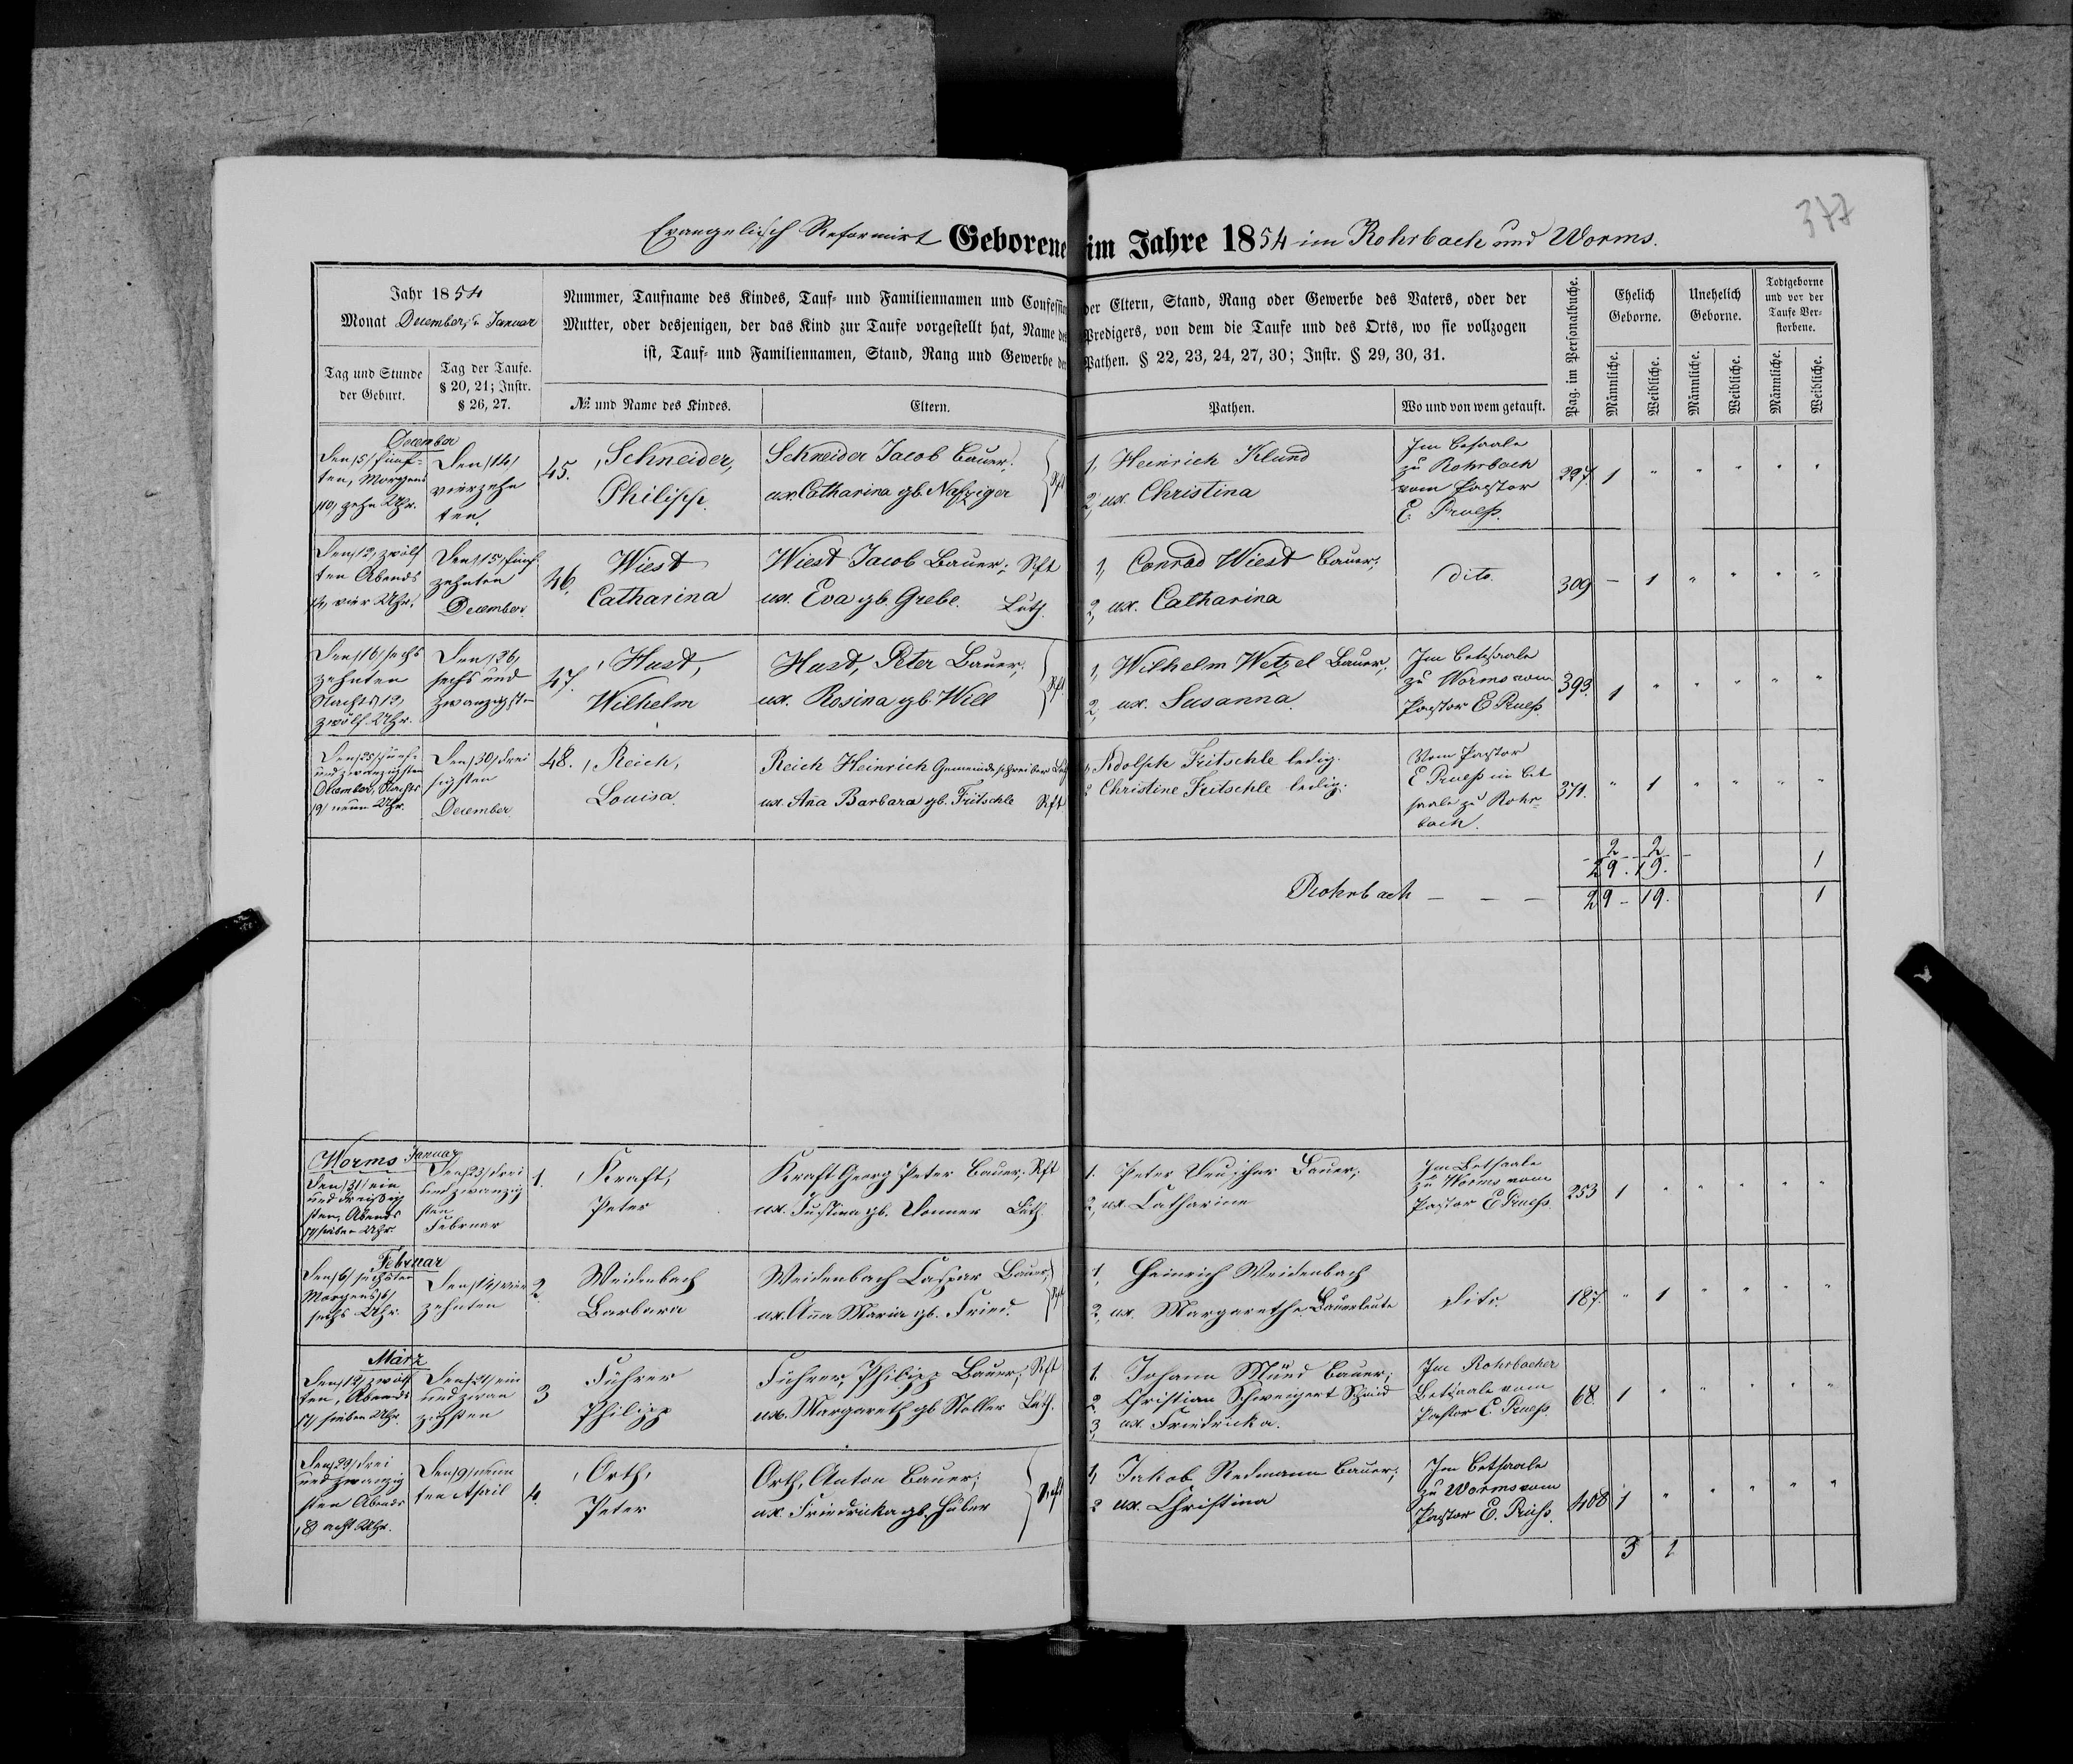 377
Evangelisch Reformirt Geborene im Jahre 1854 im Rohrbach und Worms.
Jahr 1854
Monat December, u Januar
Nummer, Taufname des Kindes, Tauf- und Familiennamen und Confession der Eltern, Stand, Rang oder Gewerbe des Vaters, oder der
Mutter, oder desjenigen, der das Kind zur Taufe vorgestellt hat, Name des Predigers, von dem die Taufe und des Orts, wo sie vollzogen
ist, Tauf- und Familiennamen, Stand, Rang und Gewerbe der Pathen. § 22, 23, 24, 27, 30; Instr. § 29, 30, 31.
Pag. im Personalbuche.
Ehelich
Geborne.
Unehelich
Geborne.
Todtgeborne
und vor der
Taufe Ver-
storbene.
Männliche.
Weibliche.
Männliche.
Weibliche.
Männliche.
Weibliche.
Tag und Stunde
der Geburt.
Tag der Taufe.
§ 20, 21; Instr.
§ 26, 27.
№ und Name des Kindes.
Eltern.
Pathen.
Wo und von wem getauft.
December
Den /5/ fünf-
ten, Morgens
/10/ zehn Uhr.
Den /14/
vierzehn
ten.
45.
Schneider,
Philipp.
Schneider Jacob Bauer.
ux. Catharina gb. Nafziger
Rft
1, Heinrich Klund
2, ux. Christina
Im Betsaale
zu Rohrbach
vom Pastor
E. Pruess.
227 1 " " " " "
Den /12/ zwölf
ten Abends
/4/ vier Uhr.
Den /15/ fünf
zehnten
December.
46.
Wiest
Catharina
Wiest Jacob Bauer; Rft
ux. Eva gb. Grebe. Luth.
1, Conrad Wiest Bauer;
2, ux. Catharina
dito.
309 — 1 " " " "
Den /16/ sechs
zehnten
Nachts /12/
zwölf Uhr.
Den /26/
sechs und
zwanzigsten
47.
Hust,
Wilhelm
Hust, Peter Bauer;
ux. Rosina gb. Will
Rft
1, Wilhelm Wetzel Bauer;
2, ux. Susanna.
Im Betsaale
zu Worms vom
Pastor E Pruess.
393. 1 " " " " "
Den /25/ fünf-
und zwanzigsten
December, Nachts
/9/ neun Uhr.
Den /30/ drei
sigsten
December.
48.
Reich,
Louisa.
Reich Heinrich Gemeindeschreiber Luth
ux. Anna Barbara gb. Fritschle Rft
1, Adolph Fritschle ledig.
2 Christine Fritschle ledig.
Vom Pastor
E Pruess im Bet
saale zu Rohr-
bach.
371. " 1 " " " "
2 2
29. 19. 1
Rohrbach — — — 29 - 19. 1
Worms Januar
Den /31/ ein
und dreißig
sten, Abends
/7/ sieben Uhr
Den /23/ drei
und zwanzig
sten
Februar
1.
Kraft,
Peter
Kraft Georg Peter Bauer, Rft
ux. Justina gb. Donner Luth.
1. Peter Bauer;
2, ux. Catharine
Im Betsaale
zu Worms vom
Pastor E Pruess.
253 1 " " " " "
Februar
Den /6/ sechsten
Morgens /6/
sechs Uhr.
Den /14/ vier
zehnten
2.
Weidenbach
Barbara
Weidenbach Caspar Bauer;
ux. Anna Maria gb. Fried.
Rft
1, Heinrich Weidenbach
2, ux. Margarethe Bauerleute
dito.
187. " 1 " " " "
März
Den /12/ zwölf
ten, Abends
/7/ sieben Uhr.
Den /21/ ein
und zwan
zigsten
3
Fuhrer
Philipp
Fuhrer, Philipp Bauer; Rft
ux. Margareth gb Stoller Luth.
1. Johann Münd Bauer;
2. Christian Schweigert Schmid
3, ux. Friedricka.
Im Rohrbacher
Betsaale vom
Pastor E. Pruess.
68. 1 " " " " "
Den /23/ drei
und zwanzig
sten Abends
/8/ acht Uhr.
Den /9/ neun
ten April
4.
Orth,
Peter
Orth, Anton Bauer;
ux. Friedricka gb. Huber
Reft
1, Jakob Redmann Bauer;
2 ux. Christina
Im Betsaale
zu Worms vom
Pastor E. Pruess.
408 1 " " " " "
3 1